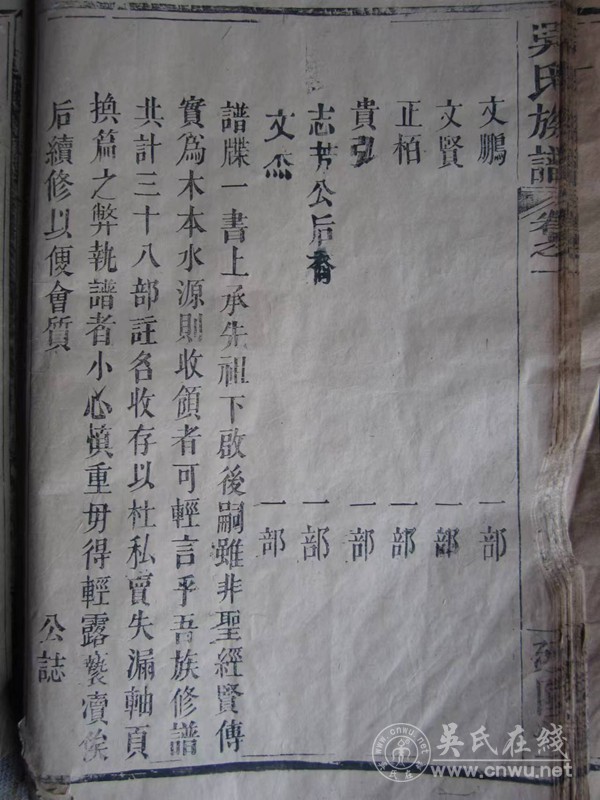 吳氏族譜 卷之一
文鵬 一部
文賢 一部
正柏 一部
貴弘 一部
志芳公后裔 一部
文杰 一部
譜牒一書上承先祖下啟後嗣雖非聖經賢傳
實為木本水源則收領者可輕言乎吾族修譜
共計三十八部註名收存以杜私賣失漏軸頁
換篇之弊執譜者小心慎重毋得輕露褻瀆俟
后續修以便會質 公誌
吳氏在线
www.cnwu.net